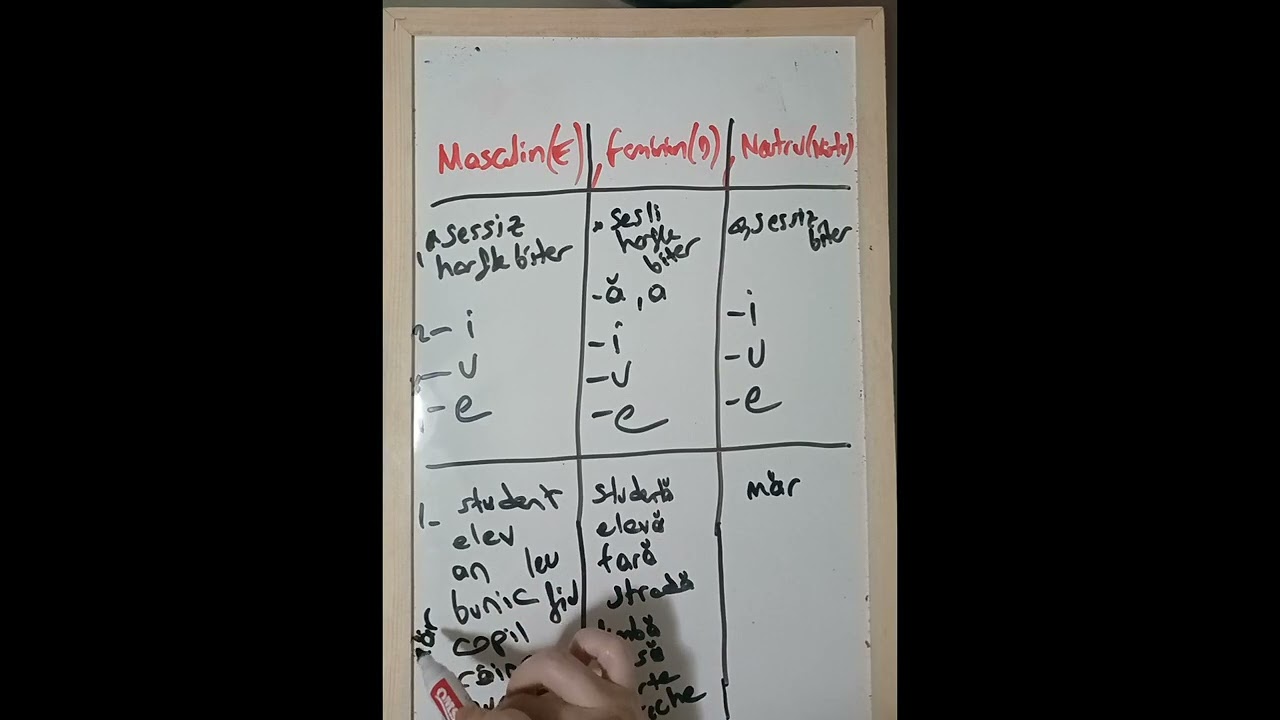 Masculin(E)
, feminin(D)
, Neutru(Nötr)
, sessiz
harfle biter
2- i
- u
- e
sesli
harfle
biter
-ă, a
-i
-u
-e
sessiz
biter
-i
-u
-e
1- student
elev
an leu
bunic fiu
copil
studentă
elevă
tară
stradă
măr